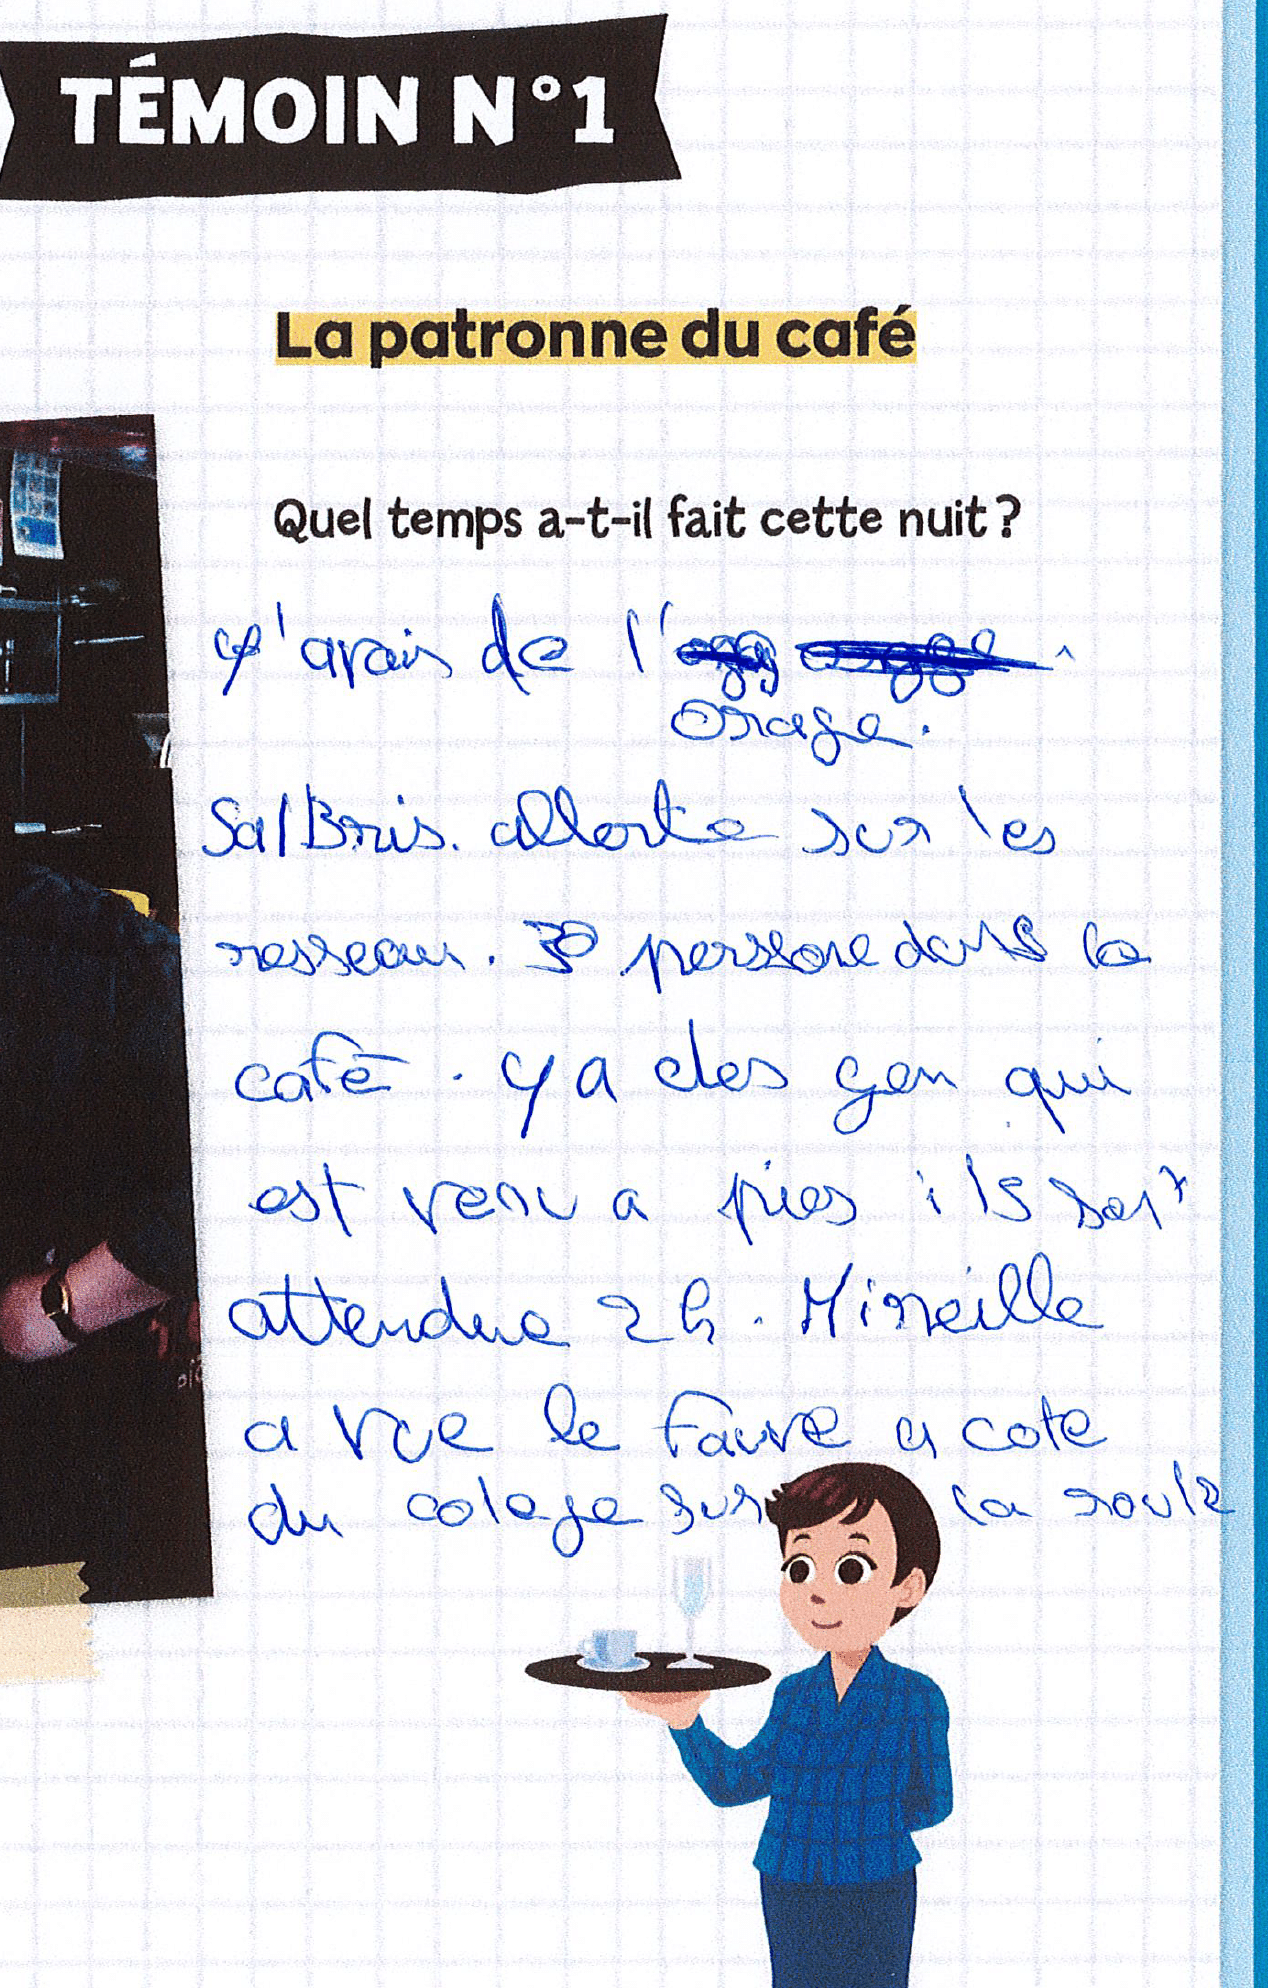 TÉMOIN N°1
La patronne du café
Quel temps a-t-il fait cette nuit ?
y'avais de l'
orage.
SalBris. allerte sur les
resseau. 30 persone dans le
café. y a des gen qui
est venu a pies ils sont
attendue 2h. Mireille
a vue le fauve a cote
du colege sur la roule